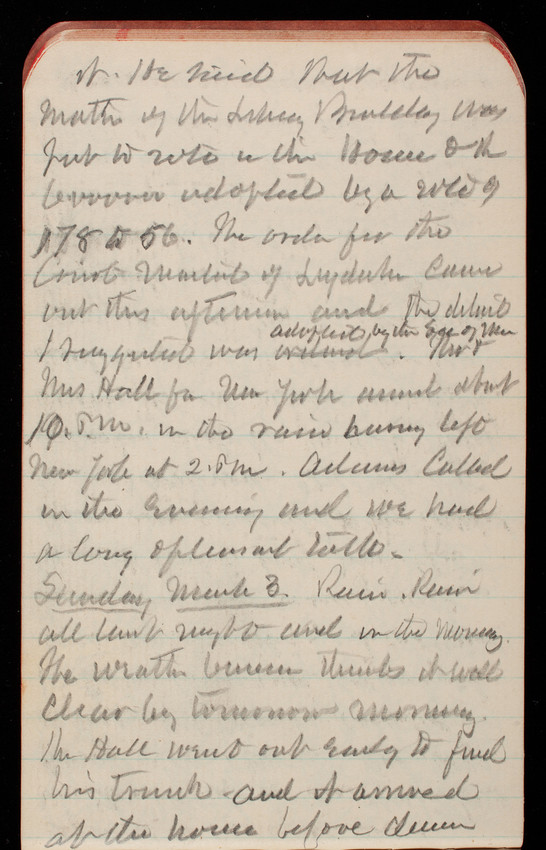 it. He said that the
matter of the Library Building was
put to vote in the House & the
adopted by a vote of
178 to 56. The order for the
Court Martial of came
out this afternoon and the detail
adopted by the Sec of War
I suggested was . Mr &
Mrs Hall for New York arrived about
10. P.M. in the rain having left
New York at 2. P.M. Adams Called
in the Evening and we had
a long & pleasant talk.
Sunday March 3. Rain. Rain
all last night and in the Morning.
The weather bureau thinks it will
Clear by tomorrow morning.
Mr Hall went out early to find
his trunk and it arrived
at the house before dinner